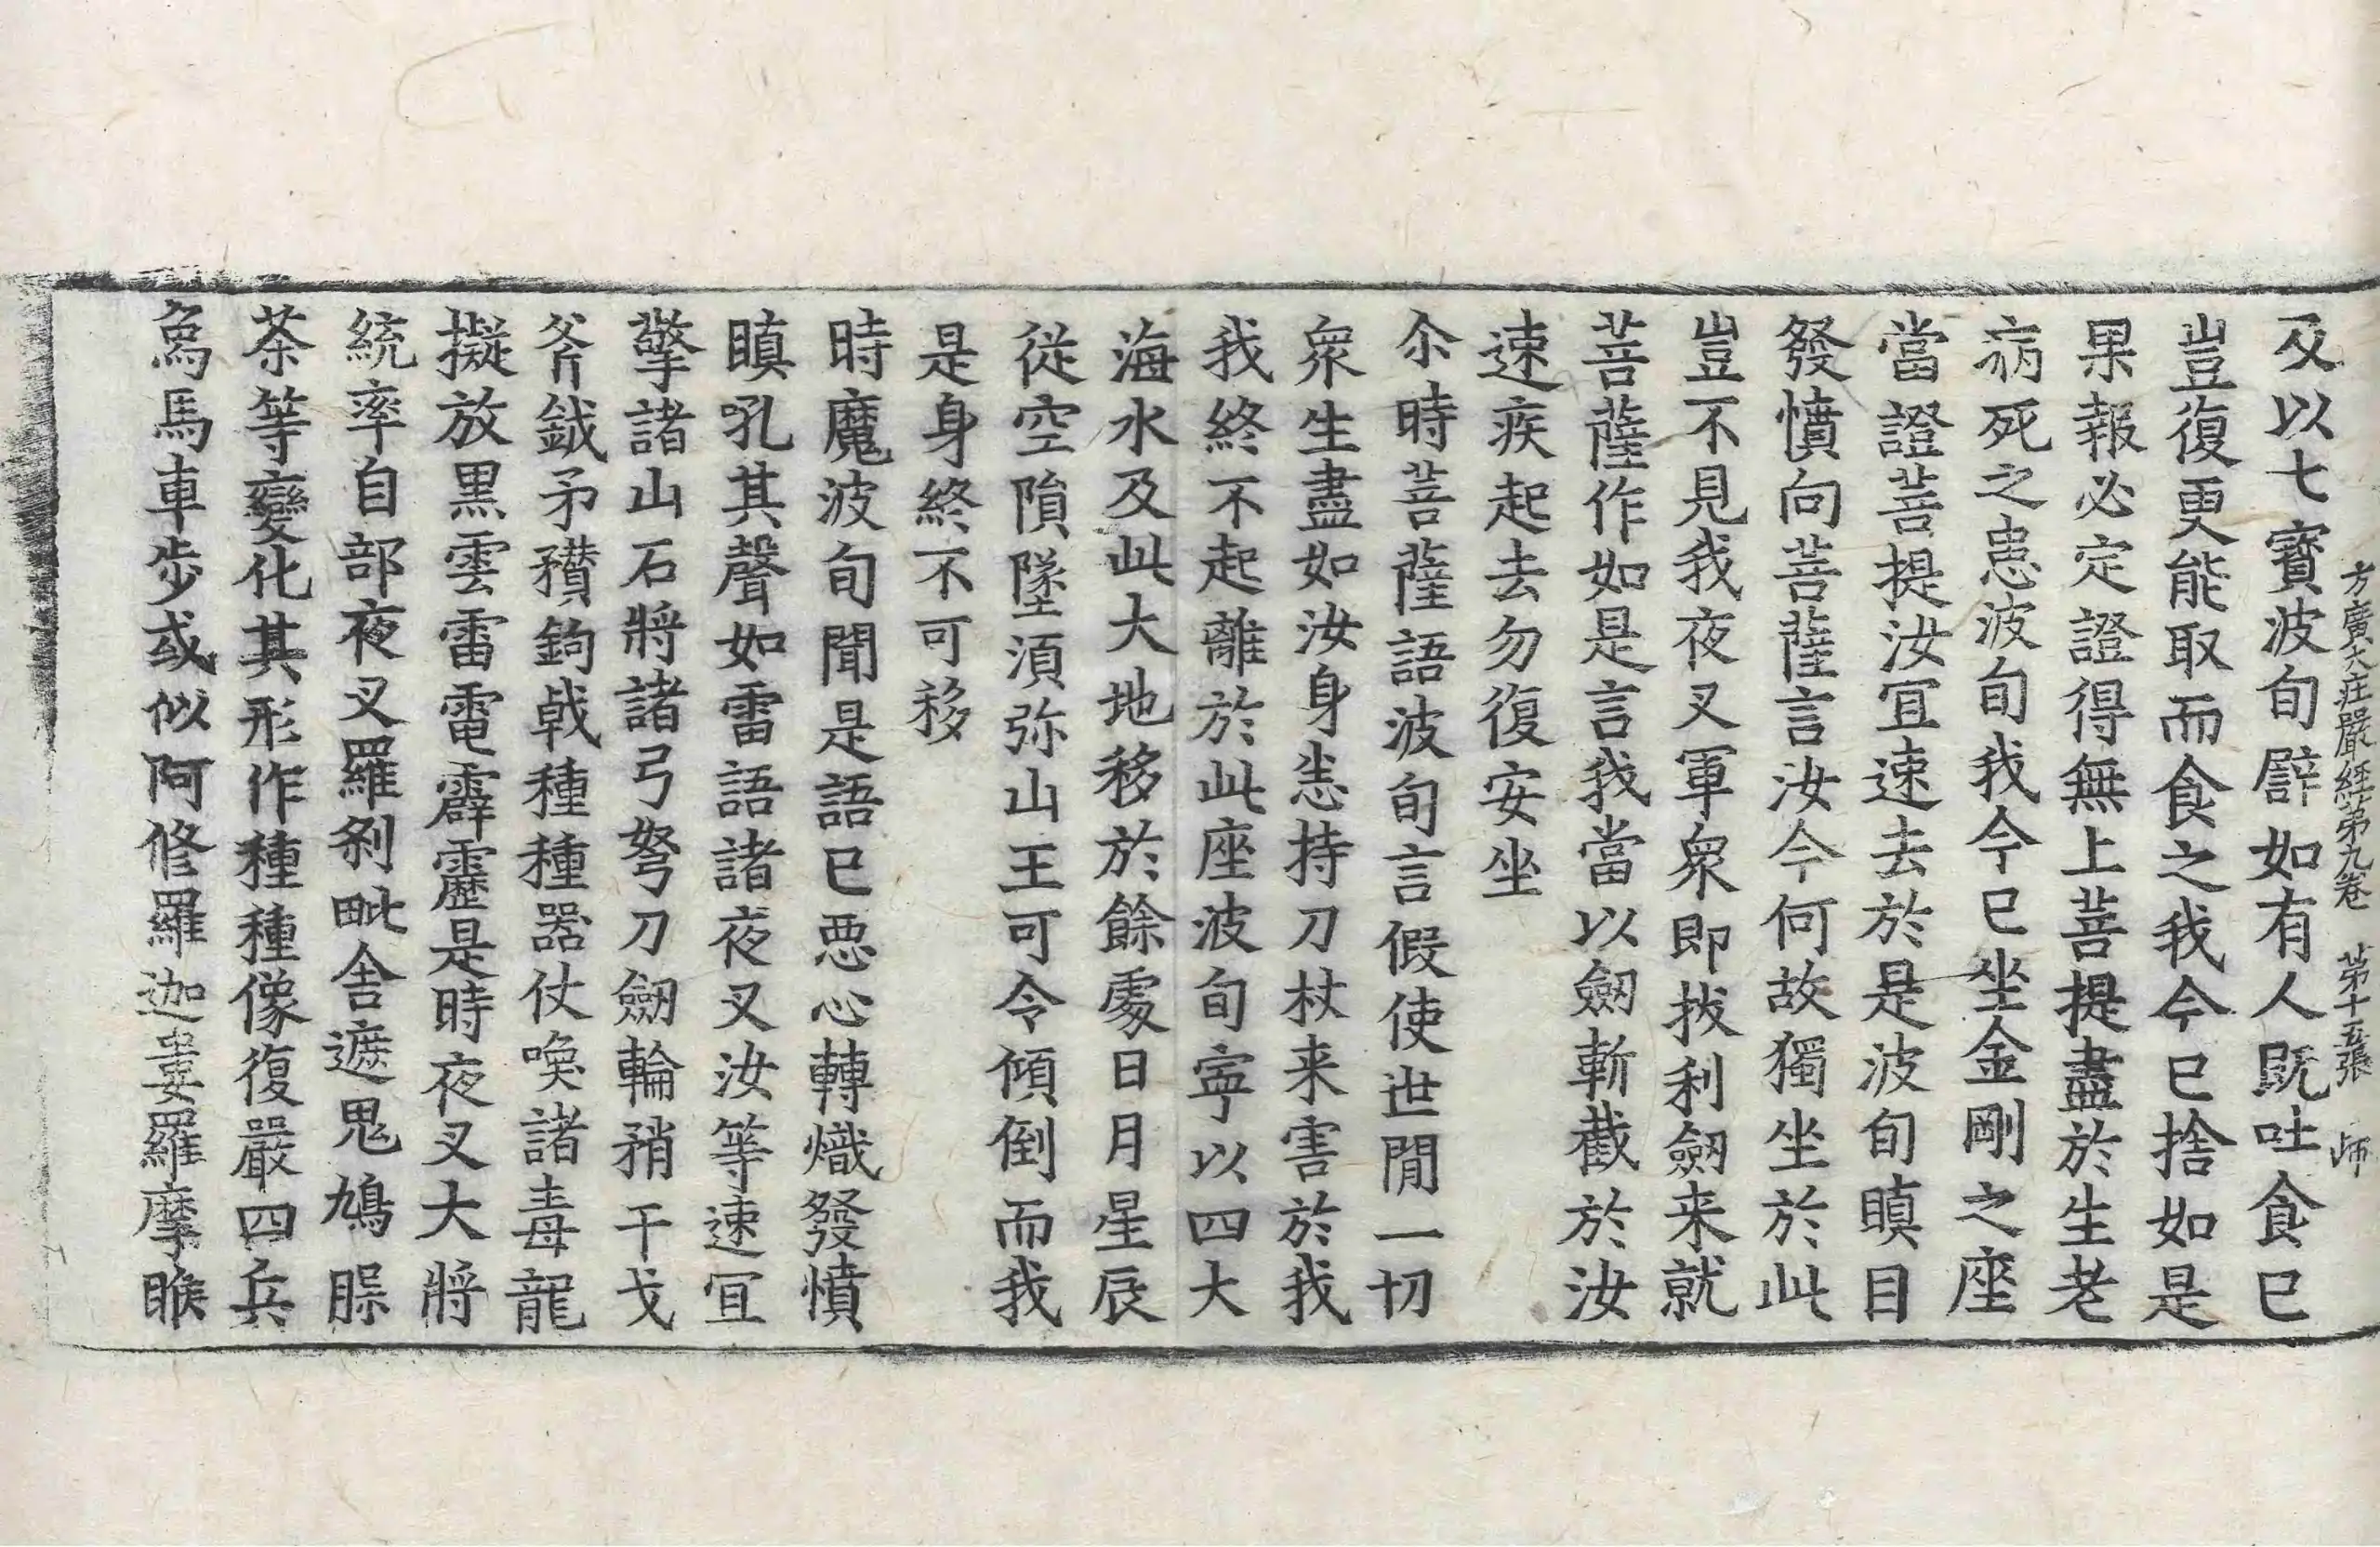 方廣大庄嚴經第九卷 第十五張 師
及以七寶波旬譬如有人既吐食已
豈復更能取而食之我今已捨如是
果報必定證得無上菩提盡於生老
病死之患波旬我今已坐金剛之座
當證菩提汝宜速去於是波旬瞋目
發憤向菩薩言汝今何故獨坐於此
豈不見我夜叉軍衆即拔利劒来就
菩薩作如是言我當以劒斬截於汝
速疾起去勿復安坐
尒時菩薩語波旬言假使世閒一切
衆生盡如汝身悉持刀杖来害於我
我終不起離於此座波旬寧以四大
海水及此大地移於餘處日月星辰
從空隕墜湏弥山王可令傾倒而我
是身終不可移
時魔波旬聞是語已惡心轉熾發憤
瞋吼其聲如雷語諸夜叉汝等速宜
擎諸山石將諸弓弩刀劒輪矟干戈
斧鉞矛䂎鉤戟種種器仗喚諸毒龍
擬放黑雲雷電霹靂是時夜叉大將
統率自部夜叉羅剎毗舍遮鬼鳩槃
荼等變化其形作種種像復嚴四兵
烏馬車步或似阿修羅迦婁羅摩睺